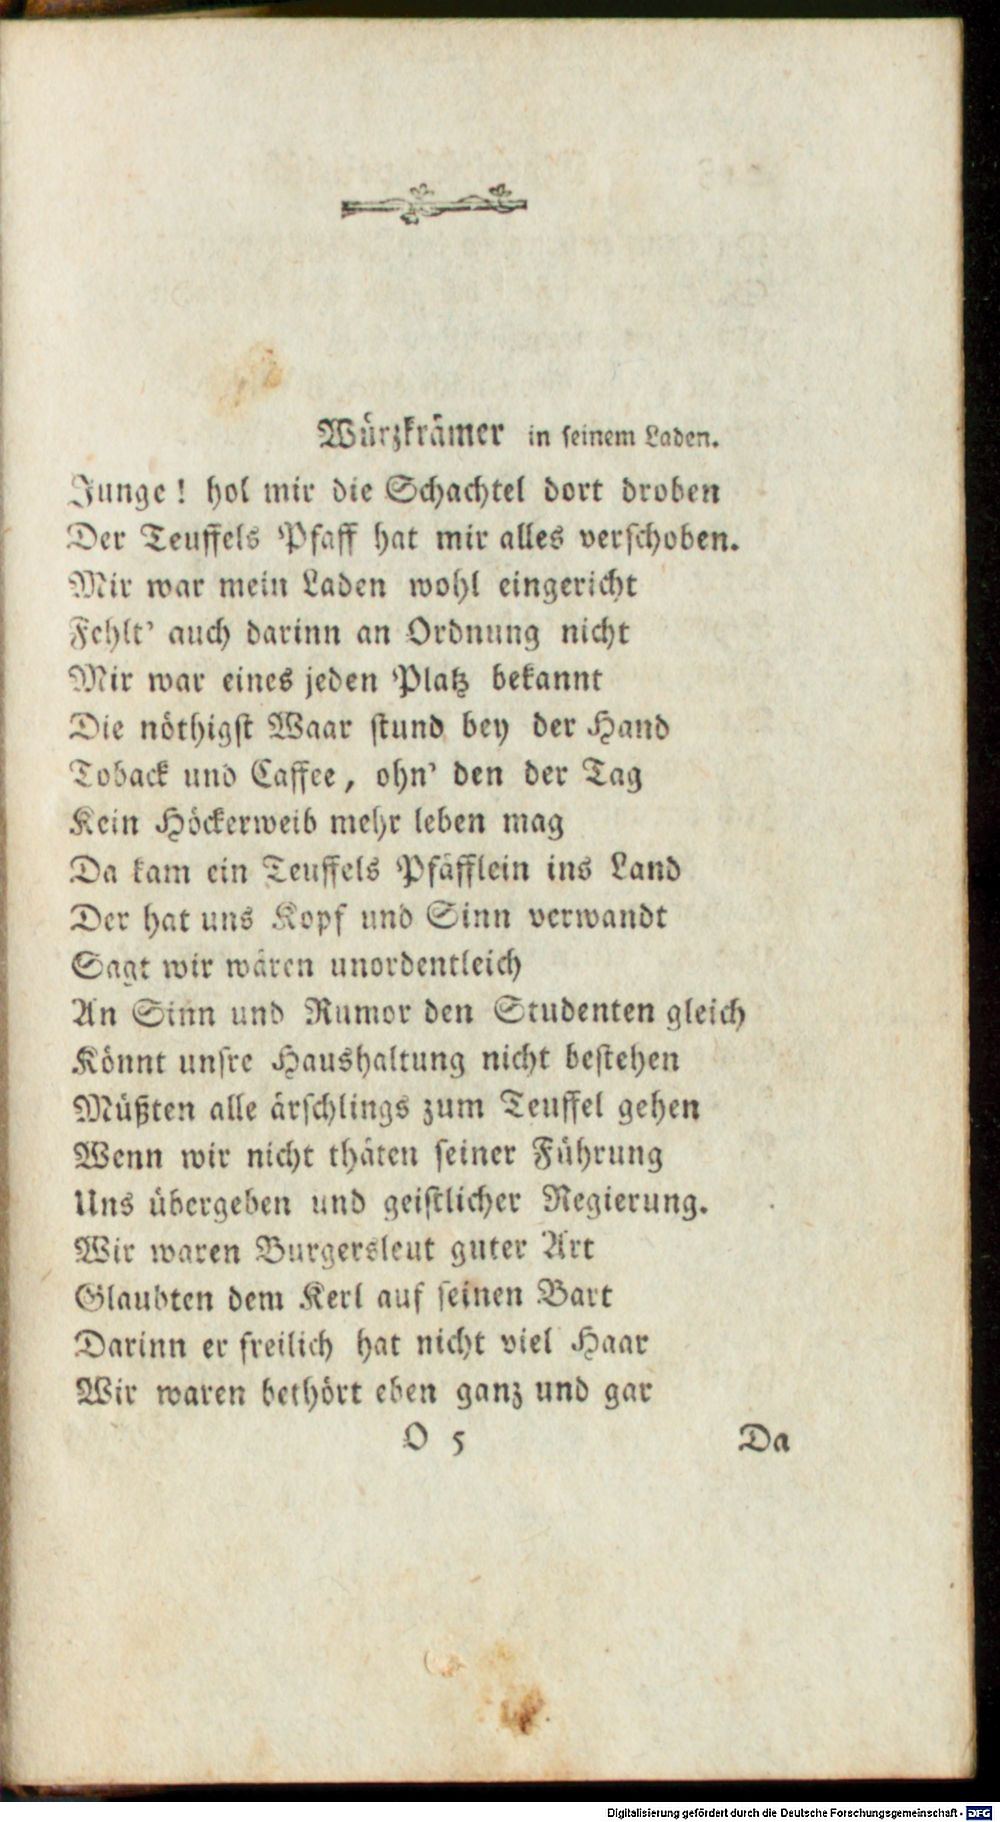 Würzkrämer in seinem Laden.
Junge! hol mir die Schachtel dort droben
Der Teuffels Pfaff hat mir alles verschoben.
Mir war mein Laden wohl eingericht
Fehlt' auch darinn an Ordnung nicht
Mir war eines jeden Platz bekannt
Die nöthigst Waar stund bey der Hand
Toback und Caffee, ohn' den der Tag
Kein Höckerweib mehr leben mag
Da kam ein Teuffels Pfäfflein ins Land
Der hat uns Kopf und Sinn verwandt
Sagt wir wären unordentleich
An Sinn und Rumor den Studenten gleich
Könnt unsre Haushaltung nicht bestehen
Müßten alle ärschlings zum Teuffel gehen
Wenn wir nicht thäten seiner Führung
Uns übergeben und geistlicher Regierung.
Wir waren Burgersleut guter Art
Glaubten dem Kerl auf seinen Bart
Darinn er freilich hat nicht viel Haar
Wir waren bethört eben ganz und gar
O 5 Da
Digitalisierung gefördert durch die Deutsche Forschungsgemeinschaft - DFG